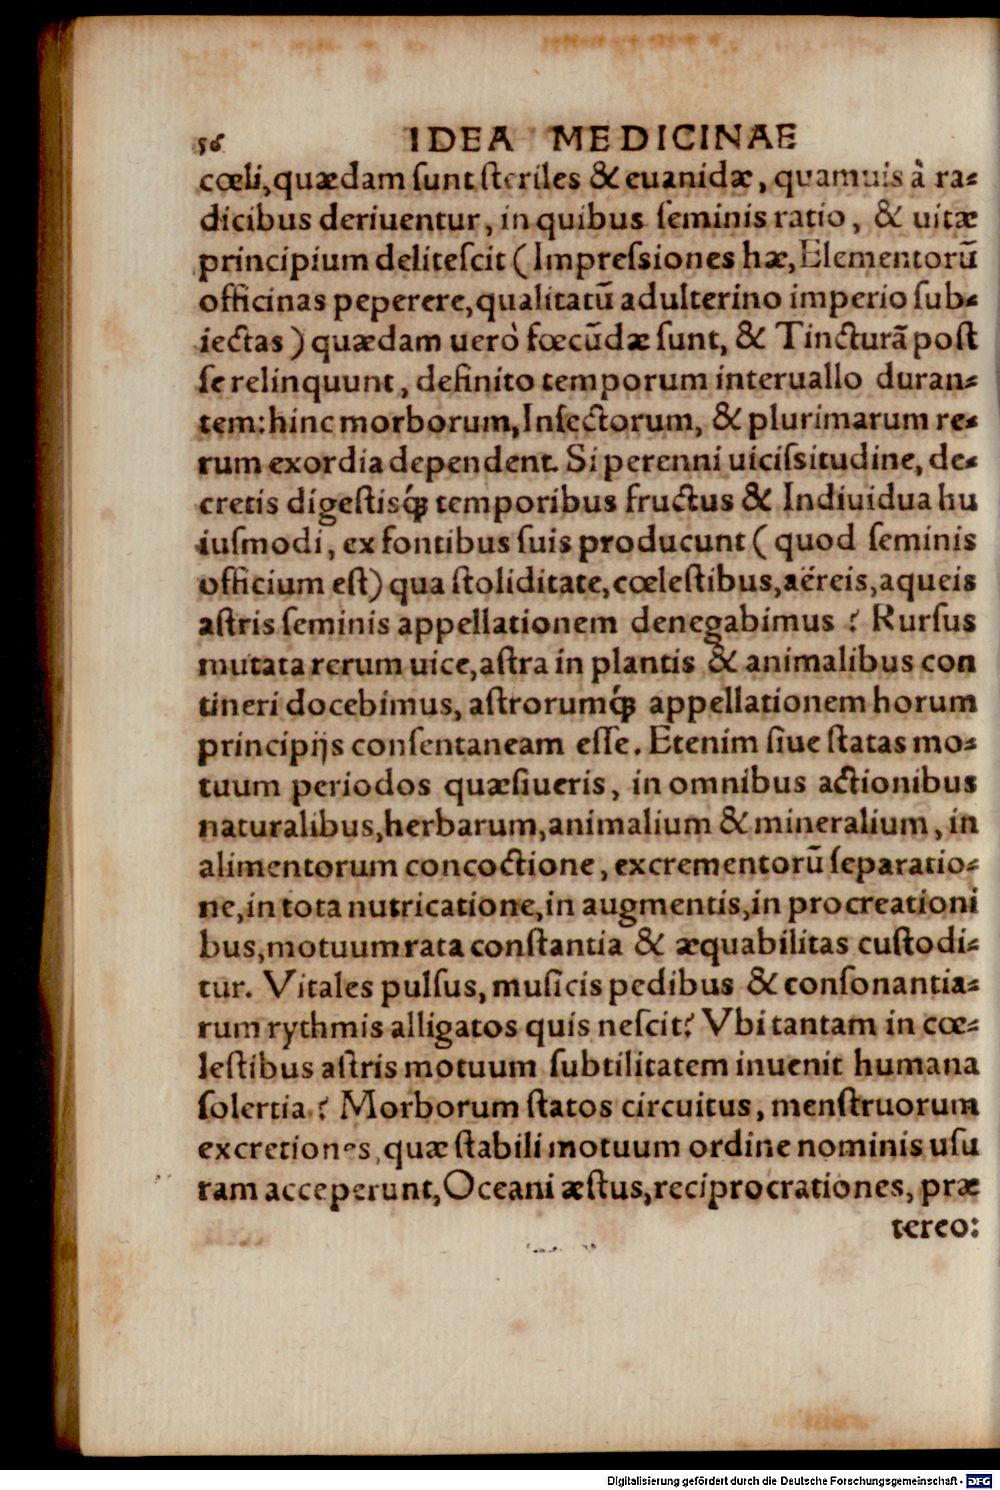 56 IDEA MEDICINAE
cœli, quædam sunt steriles & euanidæ, quamuis à ra-
dicibus deriuentur, in quibus seminis ratio, & uitæ
principium delitescit (Impressiones hæ, Elementorũ
officinas peperere, qualitatũ adulterino imperio sub-
iectas) quædam uerò fœcũdæ sunt, & Tincturã post
se relinquunt, definito temporum interuallo duran-
tem: hinc morborum, Insectorum, & plurimarum re-
rum exordia dependent. Si perenni uicissitudine, de-
cretis digestisq́; temporibus fructus & Indiuidua hu
iusmodi, ex fontibus suis producunt (quod seminis
officium est) qua stoliditate, cœlestibus, aëreis, aqueis
astris seminis appellationem denegabimus? Rursus
mutata rerum uice, astra in plantis & animalibus con
tineri docebimus, astrorumq́; appellationem horum
principijs consentaneam esse. Etenim siue statas mo-
tuum periodos quæsiueris, in omnibus actionibus
naturalibus, herbarum, animalium & mineralium, in
alimentorum concoctione, excrementorũ separatio-
ne, in tota nutricatione, in augmentis, in procreationi
bus, motuum rata constantia & æquabilitas custodi-
tur. Vitales pulsus, musicis pedibus & consonantia-
rum rythmis alligatos quis nescit? Vbi tantam in cœ-
lestibus astris motuum subtilitatem inuenit humana
solertia? Morborum statos circuitus, menstruorum
excretiones, quæ stabili motuum ordine nominis usu
ram acceperunt, Oceani æstus, reciprocrationes, præ
tereo:
Digitalisierung gefördert durch die Deutsche Forschungsgemeinschaft - DFG